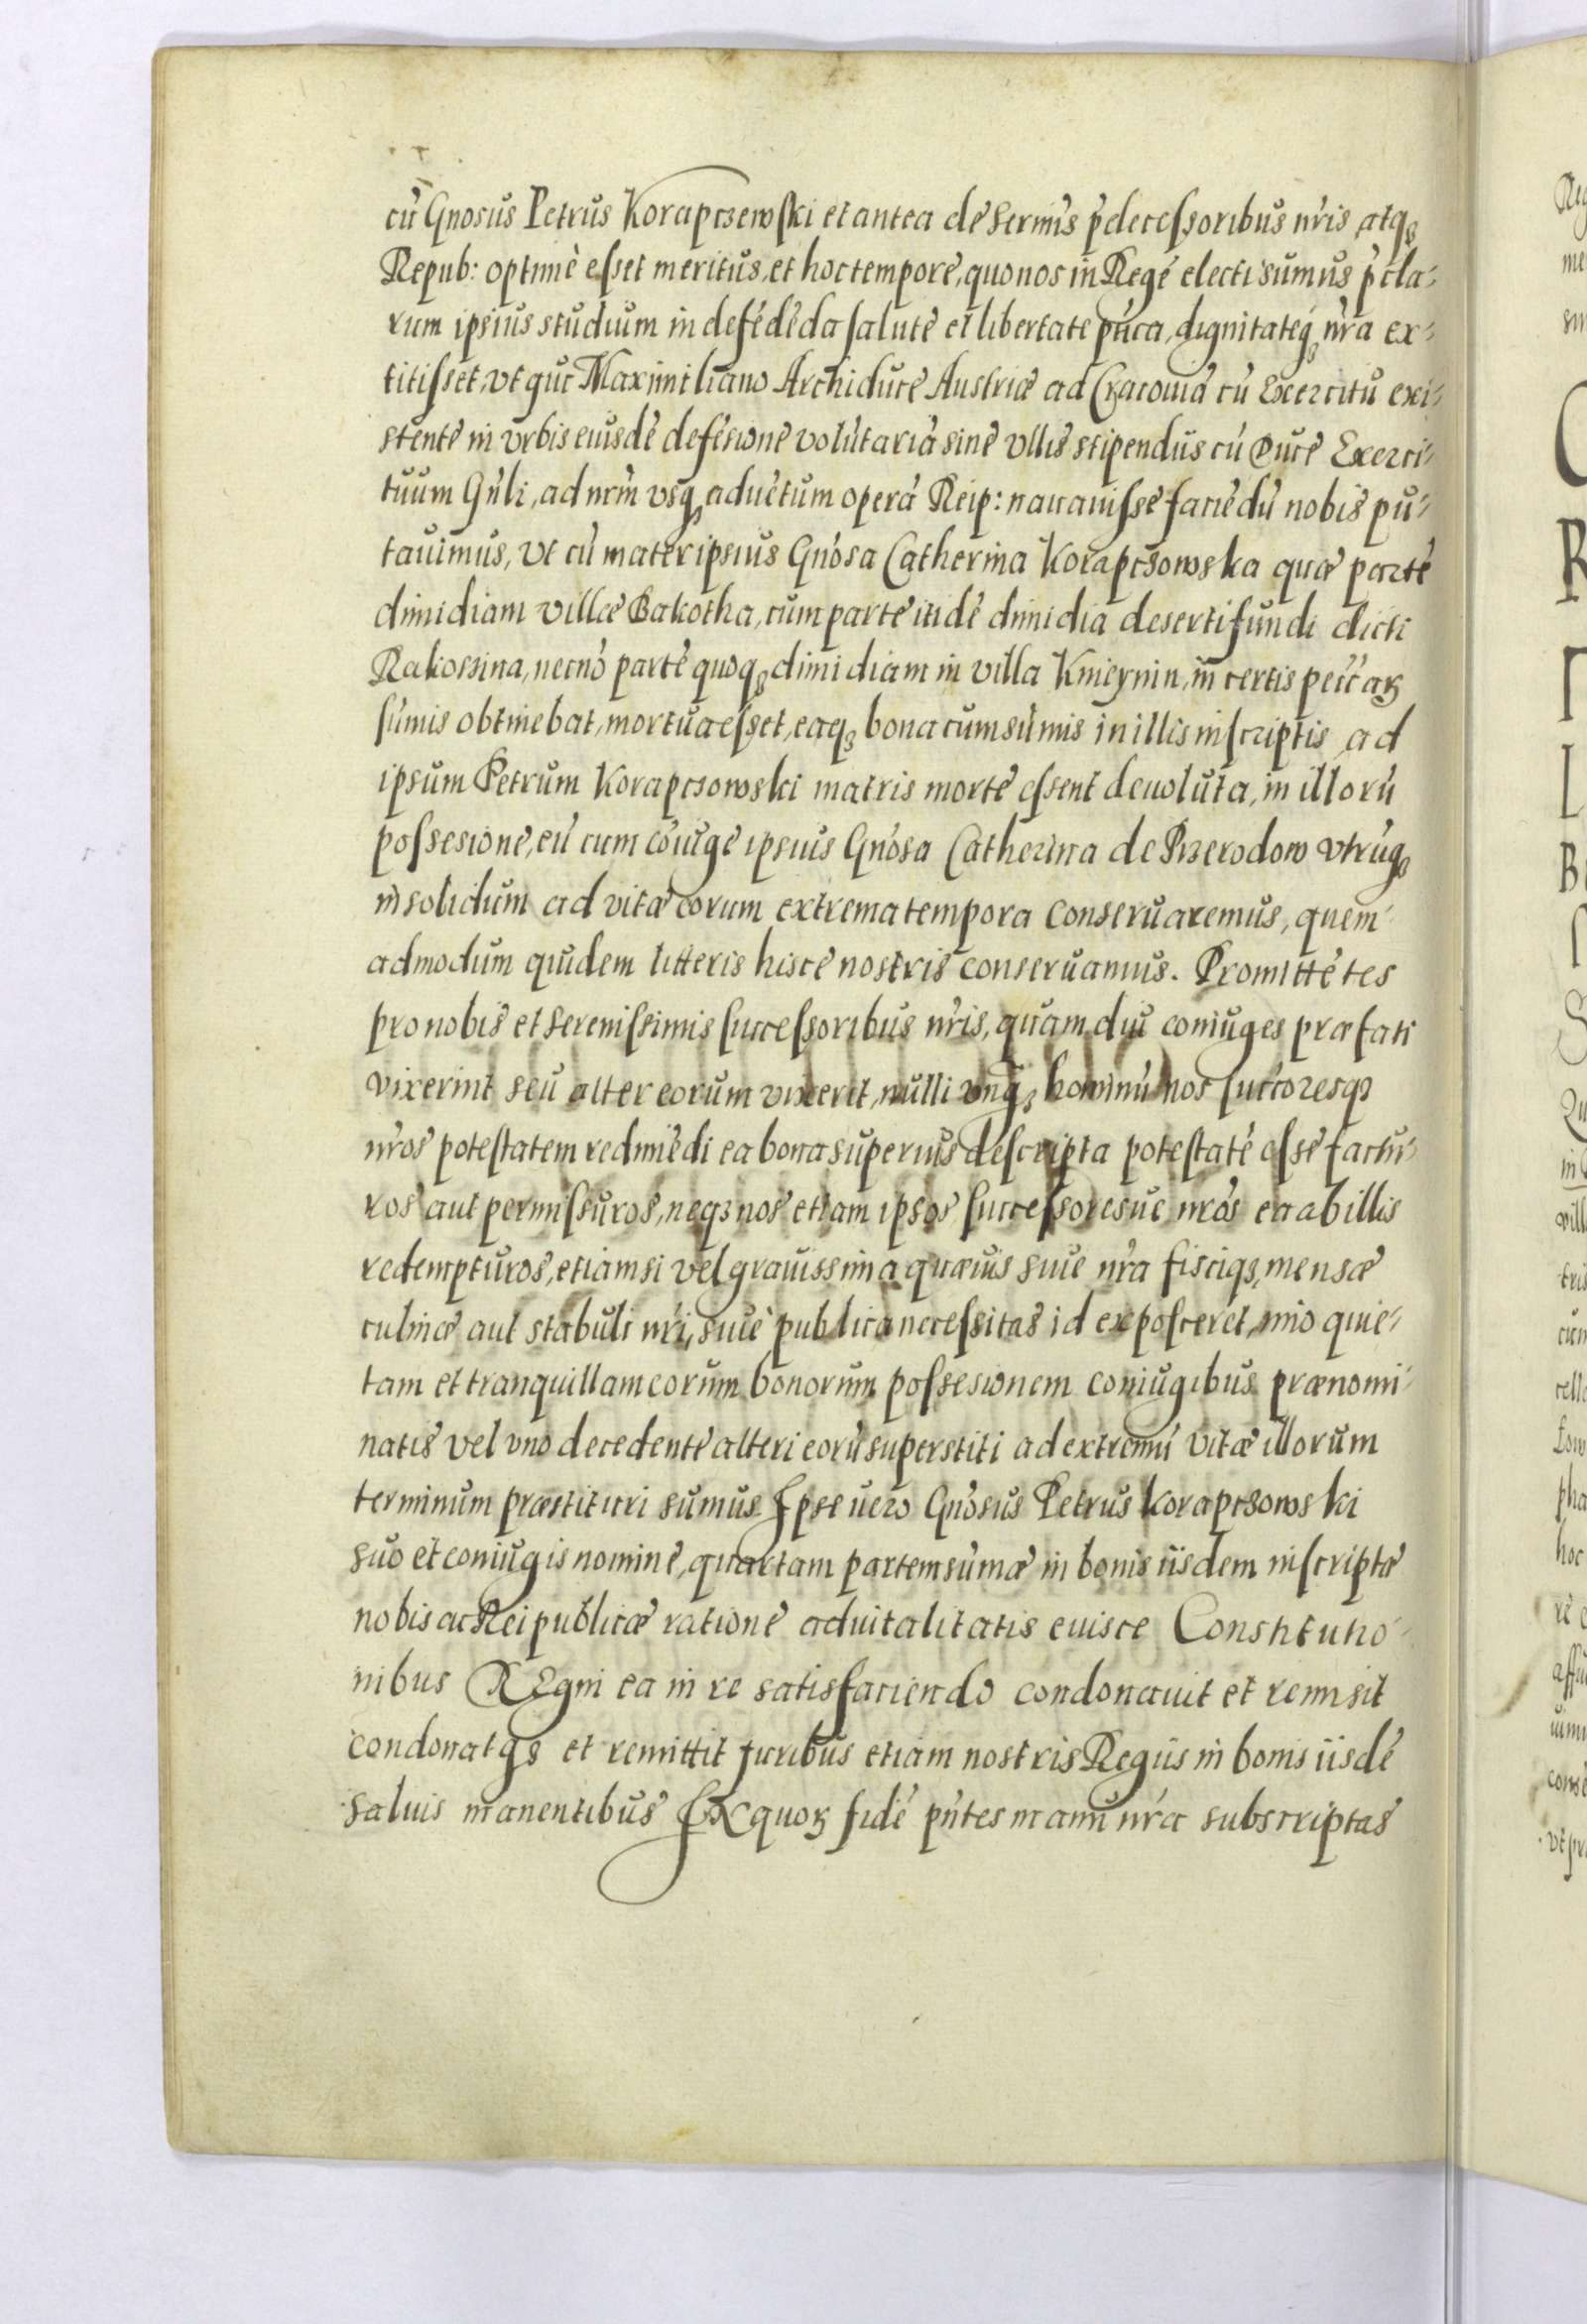 cū Gnosus Petrus Korapczewski et antea de Sermis p̄decessoribus nr̄is atq₃
Repub: optimè esset meritus, et hoc tempore, quo nos in Regē electi sumus p̄cla-
rum ipsius studium in defēdēda salute et libertate pūca, dignitateq₃ nr̄a ex-
titisset, vt qui Maximiliano Archiduce Austriæ ad Cracouiā cū Exercitu exi-
stente in vrbis eiusdē defēsione volūtariā sine vllis stipendiis cū Duce Exerci-
tuum Gn̄li, ad nrm̄ vsq₃ aduētum operā Reip: nauauisse faciēdū nobis pu-
tauimus, vt cū mater ipsius Gnōsa Catherina Korapczowska quæ partē
dimidiam villæ Bakotha, cum parte itidē dimidia deserti fundi dicti
Rakossina, necnō partē quoq₃ dimidiam in villa Knieynin, in certis pecc̄aꝝ
sūmis obtinebat, mortua esset, eaq₃ bona cum sūmis in illis inscriptis ad
ipsum Petrum Korapczowski matris morte essent deuoluta, in illorū
possesione, eū cum cōiuge ipsius Gnōsa Catherina de Przerodow vtrūq₃
in solidum ad vitæ eorum extrema tempora conseruaremus, quem-
admodum quidem litteris hisce nostris conseruamus. Promittētes
pro nobis et Serenissimis successoribus nr̄is, quam diu coniuges præfati
vixerint seu alter eorum vixerit, nulli vnq₃ hominū nos succoresq₃
nr̄os potestatem redimēdi ea bona superius descripta potestatē esse factu-
ros aut permissuros, neq₃ nos etiam ipsos successoresue nr̄os ea ab illis
redempturos, etiamsi vel grauissima quæuis siue nr̄a fisciq₃, mensæ
culinæ aut stabuli nr̄i, siuè publica necessitas id exposceret, imo quie-
tam et tranquillam eorum bonorum possesionem coniugibus prænomi-
natis vel vno decedente alteri eorū superstiti ad extremū vitæ illorum
terminum præstituri sumus. Ipse uero Gnōsus Petrus Korapczowski
suo et coniugis nomine, quartam partem sūmæ in bonis iisdem inscriptæ
nobis ac Reipublicæ ratione aduitalitatis euisce Constitutio-
nibus REgni ea in re satisfaciendo condonauit et remisit
condonatq₃ et remittit Juribus etiam nostris Regiis in bonis iisdē
saluis manentibus IN quoꝝ fidē pn̄tes manu nr̄a subscriptas